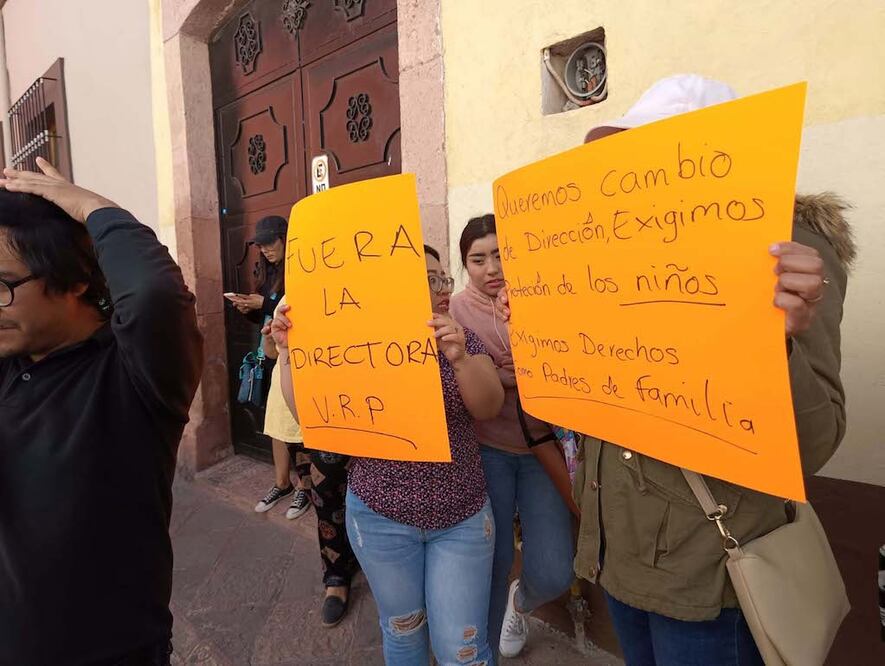 FUERA
LA
DIRECTORA
V.R.P
Queremos cambio
de Dirección, Exigimos
Protección de los niños
Exigimos Derechos
como Padres de familia
NO